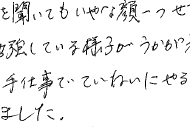 を聞いてもいやな顔一つせ
強している様子がうかが
手仕事でていねいにやる
ました。